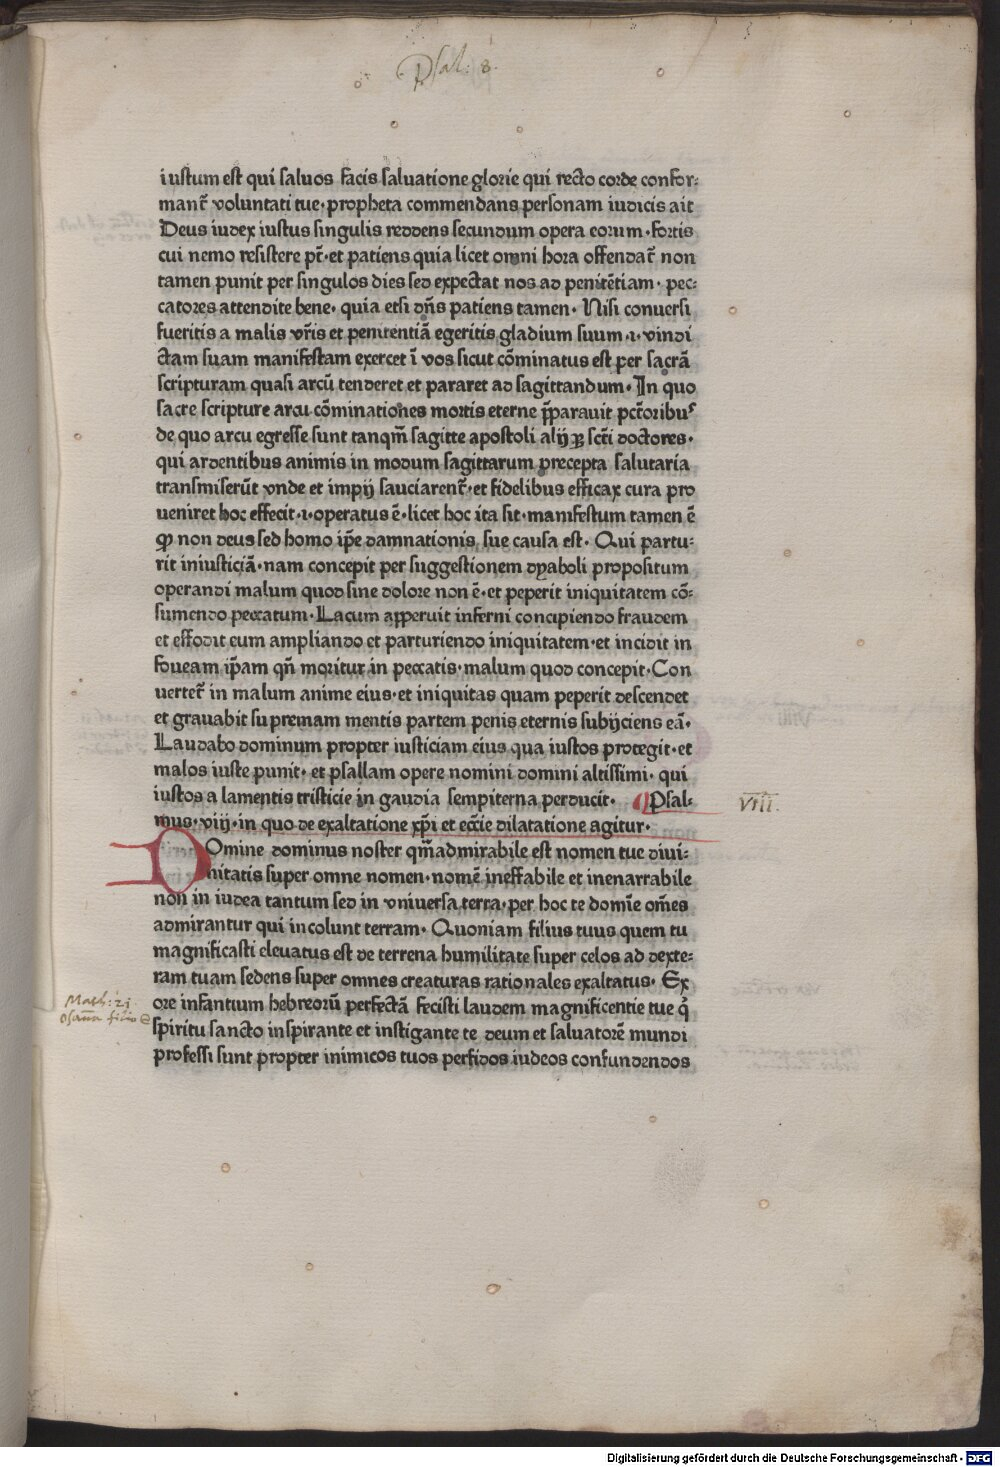 Psal: 8.
iustum est qui saluos facis saluatione glorie qui recto corde confor⸗
manť voluntati tue· propheta commendans personam iudicis ait
Deus iudex iustus singulis reddens secundum opera eorum · fortis
cui nemo resistere pt̄· et patiens quia licet omni hora offendať non
tamen punit per singulos dies sed expectat nos ad penitētiam · pec⸗
catores attendite bene· quia etsi dn̄s patiens tamen · Nisi conuersi
fueritis a malis vr̄is et penitentiā egeritis gladium suum ·i· vindi
ctam suam manifestam exercet ī vos sicut cōminatus est per sacrā
scripturam quasi arcū tenderet et pararet ad sagittandum· In quo
sacre scripture arcu cōminationes mortis eterne p̄parauit pctōribus
de quo arcu egresse sunt tanqm̄ sagitte apostoli alijqꝫ sctī doctores·
qui ardentibus animis in modum sagittarum precepta salutaria
transmiserūt vnde et impij sauciarenť· et fidelibus efficax cura pro
ueniret hoc effecit ·i· operatus ē· licet hoc ita sit· manifestum tamen ē
ꝙ non deus sed homo ip̄e damnationis sue causa est · Qui partu⸗
rit iniusticiā· nam concepit per suggestionem dyaboli propositum
operandi malum quod sine dolore non ē· et peperit iniquitatem cō⸗
sumendo peccatum· Lacum apperuit inferni concipiendo fraudem
et effodit eum ampliando et parturiendo iniquitatem· et incidit in
foueam ip̄am qn̄ moritur in peccatis· malum quod concepit· Con
uerteť in malum anime eius· et iniquitas quam peperit descendet
et grauabit supremam mentis partem penis eternis subijciens eā·
Laudabo dominum propter iusticiam eius qua iustos protegit· et
malos iuste punit· et psallam opere nomini domini altissimi· qui
iustos a lamentis tristicie in gaudia sempiterna perducit· ¶ Psal⸗
VIII.
mus· viij· in quo de exaltatione xp̄i et ecc̄ie dilatatione agitur·
DOmine dominus noster qm̄ admirabile est nomen tue diui⸗
nitatis super omne nomen· nomē ineffabile et inenarrabile
non in iudea tantum sed in vniuersa terra· per hoc te domīe om̄es
admirantur qui incolunt terram· Quoniam filius tuus quem tu
magnificasti eleuatus est de terrena humilitate super celos ad dexte⸗
ram tuam sedens super omnes creaturas rationales exaltatus· Ex
Math: 21.
ore infantium hebreorū perfectā fecisti laudem magnificentie tue q̇
osanna filio
spiritu sancto inspirante et instigante te deum et saluatorē mundi
professi sunt propter inimicos tuos perfidos iudeos confundendos
Digitalisierung gefördert durch die Deutsche Forschungsgemeinschaft - DFG